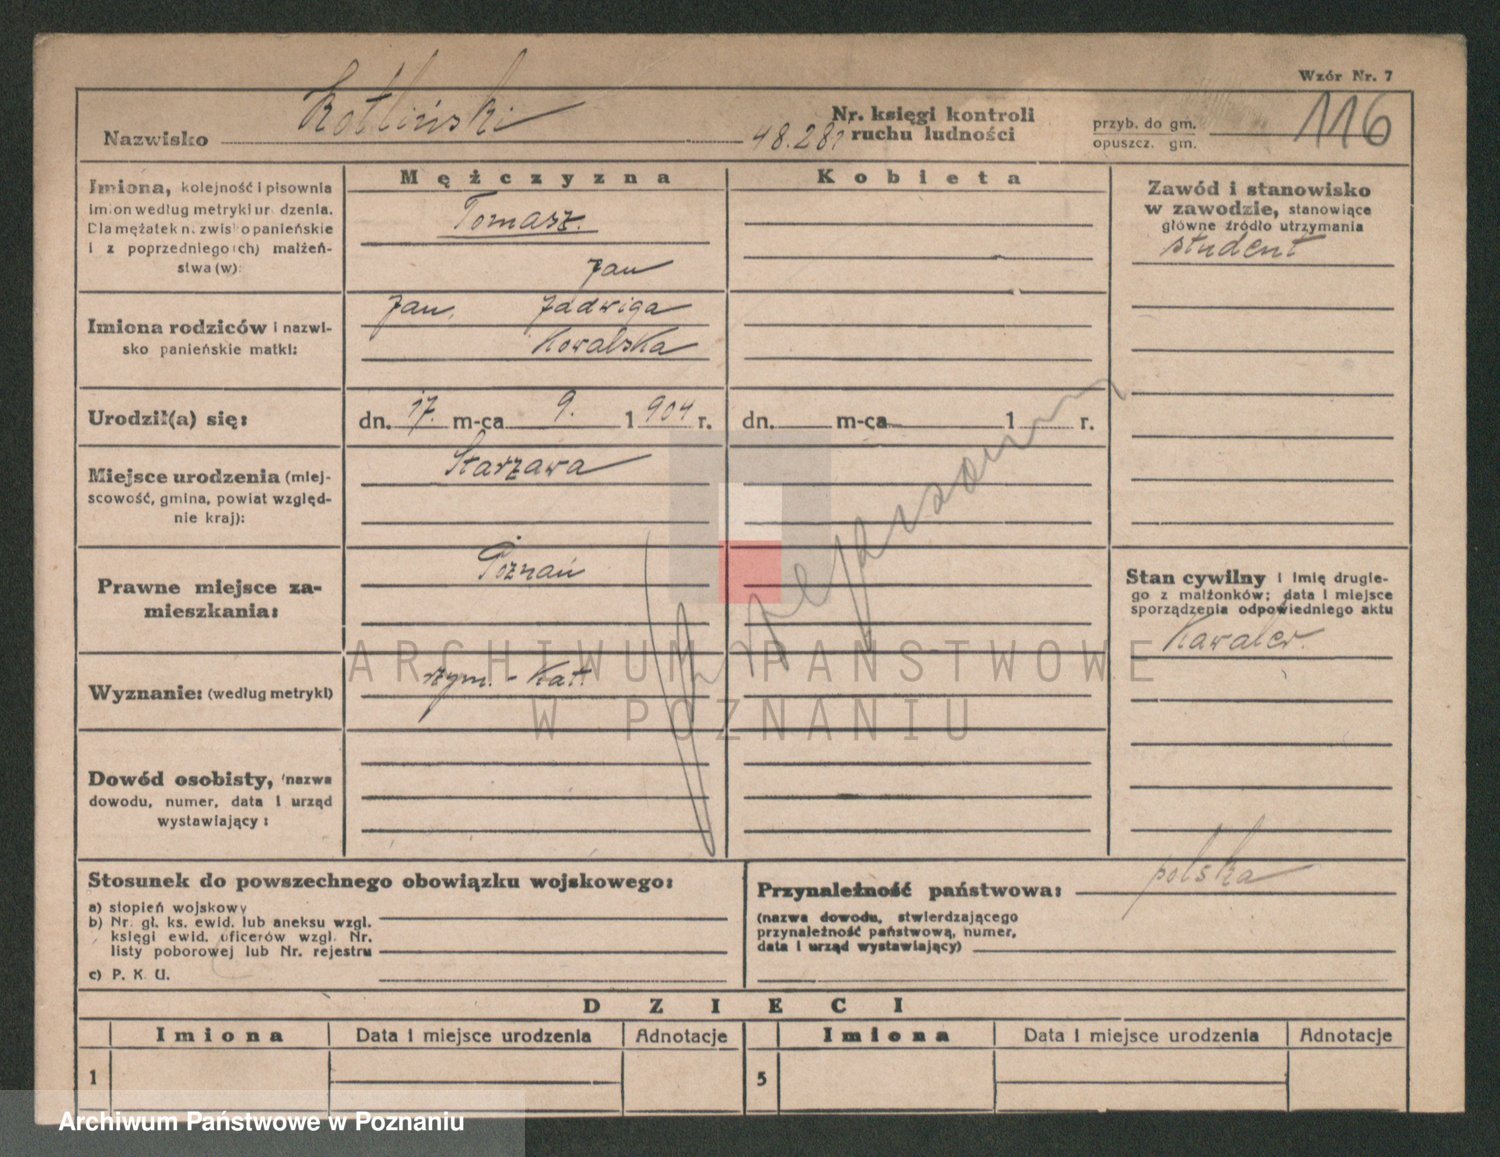 Wzór Nr. 7
Nazwisko Kotliński
48.28
Nr. księgi kontroli
ruchu ludności
przyb. do gm.
opuszcz. gm.
116
Imiona, kolejność i pisownia
imion według metryki urodzenia.
Dla mężatek n. zwisko panieńskie
i z poprzedniego (ch) małżeń-
stwa (w):
Mężczyzna
Tomasz.
Jan
Kobieta
Zawód i stanowisko
w zawodzie, stanowiące
główne źródło utrzymania
student
Imiona rodziców i nazwi-
sko panieńskie matki:
Jan, Jadwiga
Kowalska
Urodził(a) się:
dn. 17. m-ca 9. 1904 r.
dn. m-ca 1 r.
Miejsce urodzenia (miej-
scowość, gmina, powiat względ-
nie kraj):
Starzawa
Prawne miejsce za-
mieszkania:
Poznań
Stan cywilny i imię drugie-
go z małżonków; data i miejsce
sporządzenia odpowiedniego aktu
Kawaler.
Wyznanie: (według metryki)
rzym. - kat.
ARCHIWUM PAŃSTWOWE
W POZNANIU
Dowód osobisty, (nazwa
dowodu, numer, data i urząd
wystawiający:
Stosunek do powszechnego obowiązku wojskowego:
a) stopień wojskowy
b) Nr. gł. ks. ewid. lub aneksu wzgl.
księgi ewid. oficerów wzgl. Nr.
listy poborowej lub Nr. rejestru
c) P. K. U.
Przynależność państwowa: polska
(nazwa dowodu, stwierdzającego
przynależność państwową, numer,
data i urząd wystawiający)
DZIECI
Imiona Data i miejsce urodzenia Adnotacje
Imiona Data i miejsce urodzenia Adnotacje
1
5
Archiwum Państwowe w Poznaniu